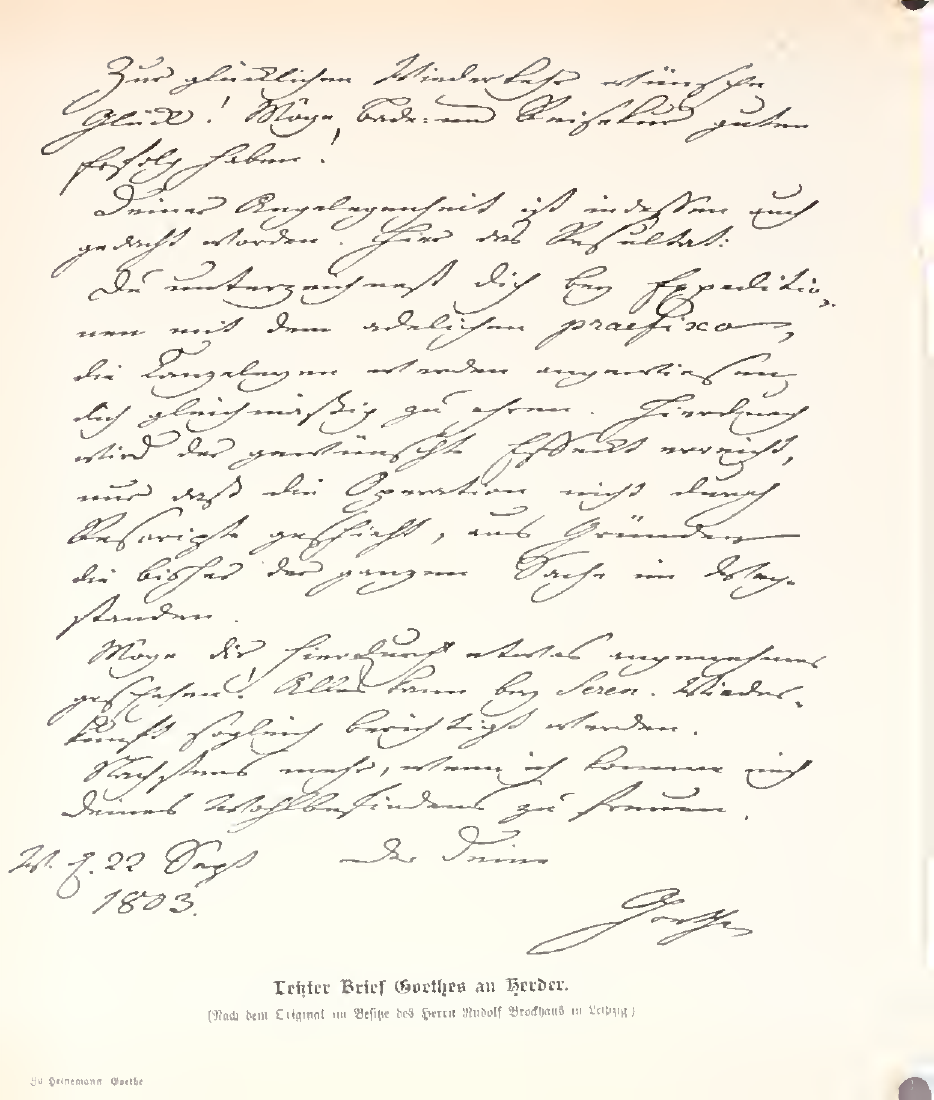 Zur glücklichen Wiederkehr wünsche
Glück! Möge Bade- und Reisekur guten
Erfolg haben!
Deiner Angelegenheit ist indessen auch
gedacht worden. Hier das Resultat:
Du unterzeichnest dich bey Expeditio-
nen mit dem adelichen praefixo,
die Canzeleyen werden angewiesen
dich gleichmäßig zu ehren. Hierdurch
wird der gewünschte Effeckt erreicht,
nur daß die Operation nicht durch
Rescripte geschieht, aus Gründen
die bisher der ganzen Sache im Weg
standen.
Möge dir hierdurch etwas angenehmes
geschehen! Alles kann bey Seren. Wieder-
kunft sogleich berichtigt werden.
Nächstens mehr, wenn ich komme mich
deines Wohlbefindens zu freuen.
W. d. 22 Sept der deine
1803.
Goethe
Letzter Brief Goethes an Herder.
(Nach dem Original im Besitze des Herrn Rudolf Brockhaus in Leipzig)
Zu Heinemann Goethe